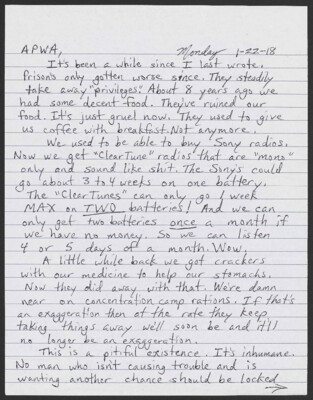 APWA, Monday 1-22-18
It's been a while since I last wrote.
Prison's only gotten worse since. They steadily
take away "privileges." About 8 years ago we
had some decent food. They've ruined our
food. It's just gruel now. They used to give
us coffee with breakfast. Not anymore.
We used to be able to buy Sony radios.
Now we get "ClearTune" radios that are "mono"
only and sound like shit. The Sony's could
go about 3 to 4 weeks on one battery.
The "ClearTunes" can only go 1 week
MAX on TWO batteries! And we can
only get two batteries once a month if
we have no money. So we can listen
4 or 5 days of a month. Wow.
A little while back we got crackers
with our medicine to help our stomachs.
Now they did away with that. We're damn
near on concentration camp rations. If that's
an exaggeration then at the rate they keep
taking things away we'll soon be and it'll
no longer be an exaggeration.
This is a pitiful existence. It's inhumane.
No man who isn't causing trouble and is
wanting another chance should be locked